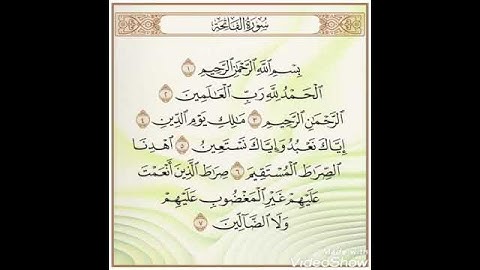 سُورَةُ الفَاتِحَةِ
بِسْمِ ٱللَّهِ ٱلرَّحْمَٰنِ ٱلرَّحِيمِ ١
ٱلْحَمْدُ لِلَّهِ رَبِّ ٱلْعَٰلَمِينَ ٢
ٱلرَّحْمَٰنِ ٱلرَّحِيمِ ٣ مَٰلِكِ يَوْمِ ٱلدِّينِ ٤
إِيَّاكَ نَعْبُدُ وَإِيَّاكَ نَسْتَعِينُ ٥ ٱهْدِنَا
ٱلصِّرَٰطَ ٱلْمُسْتَقِيمَ ٦ صِرَٰطَ ٱلَّذِينَ أَنْعَمْتَ
عَلَيْهِمْ غَيْرِ ٱلْمَغْضُوبِ عَلَيْهِمْ
وَلَا ٱلضَّآلِّينَ ٧
Made with
VideoShow